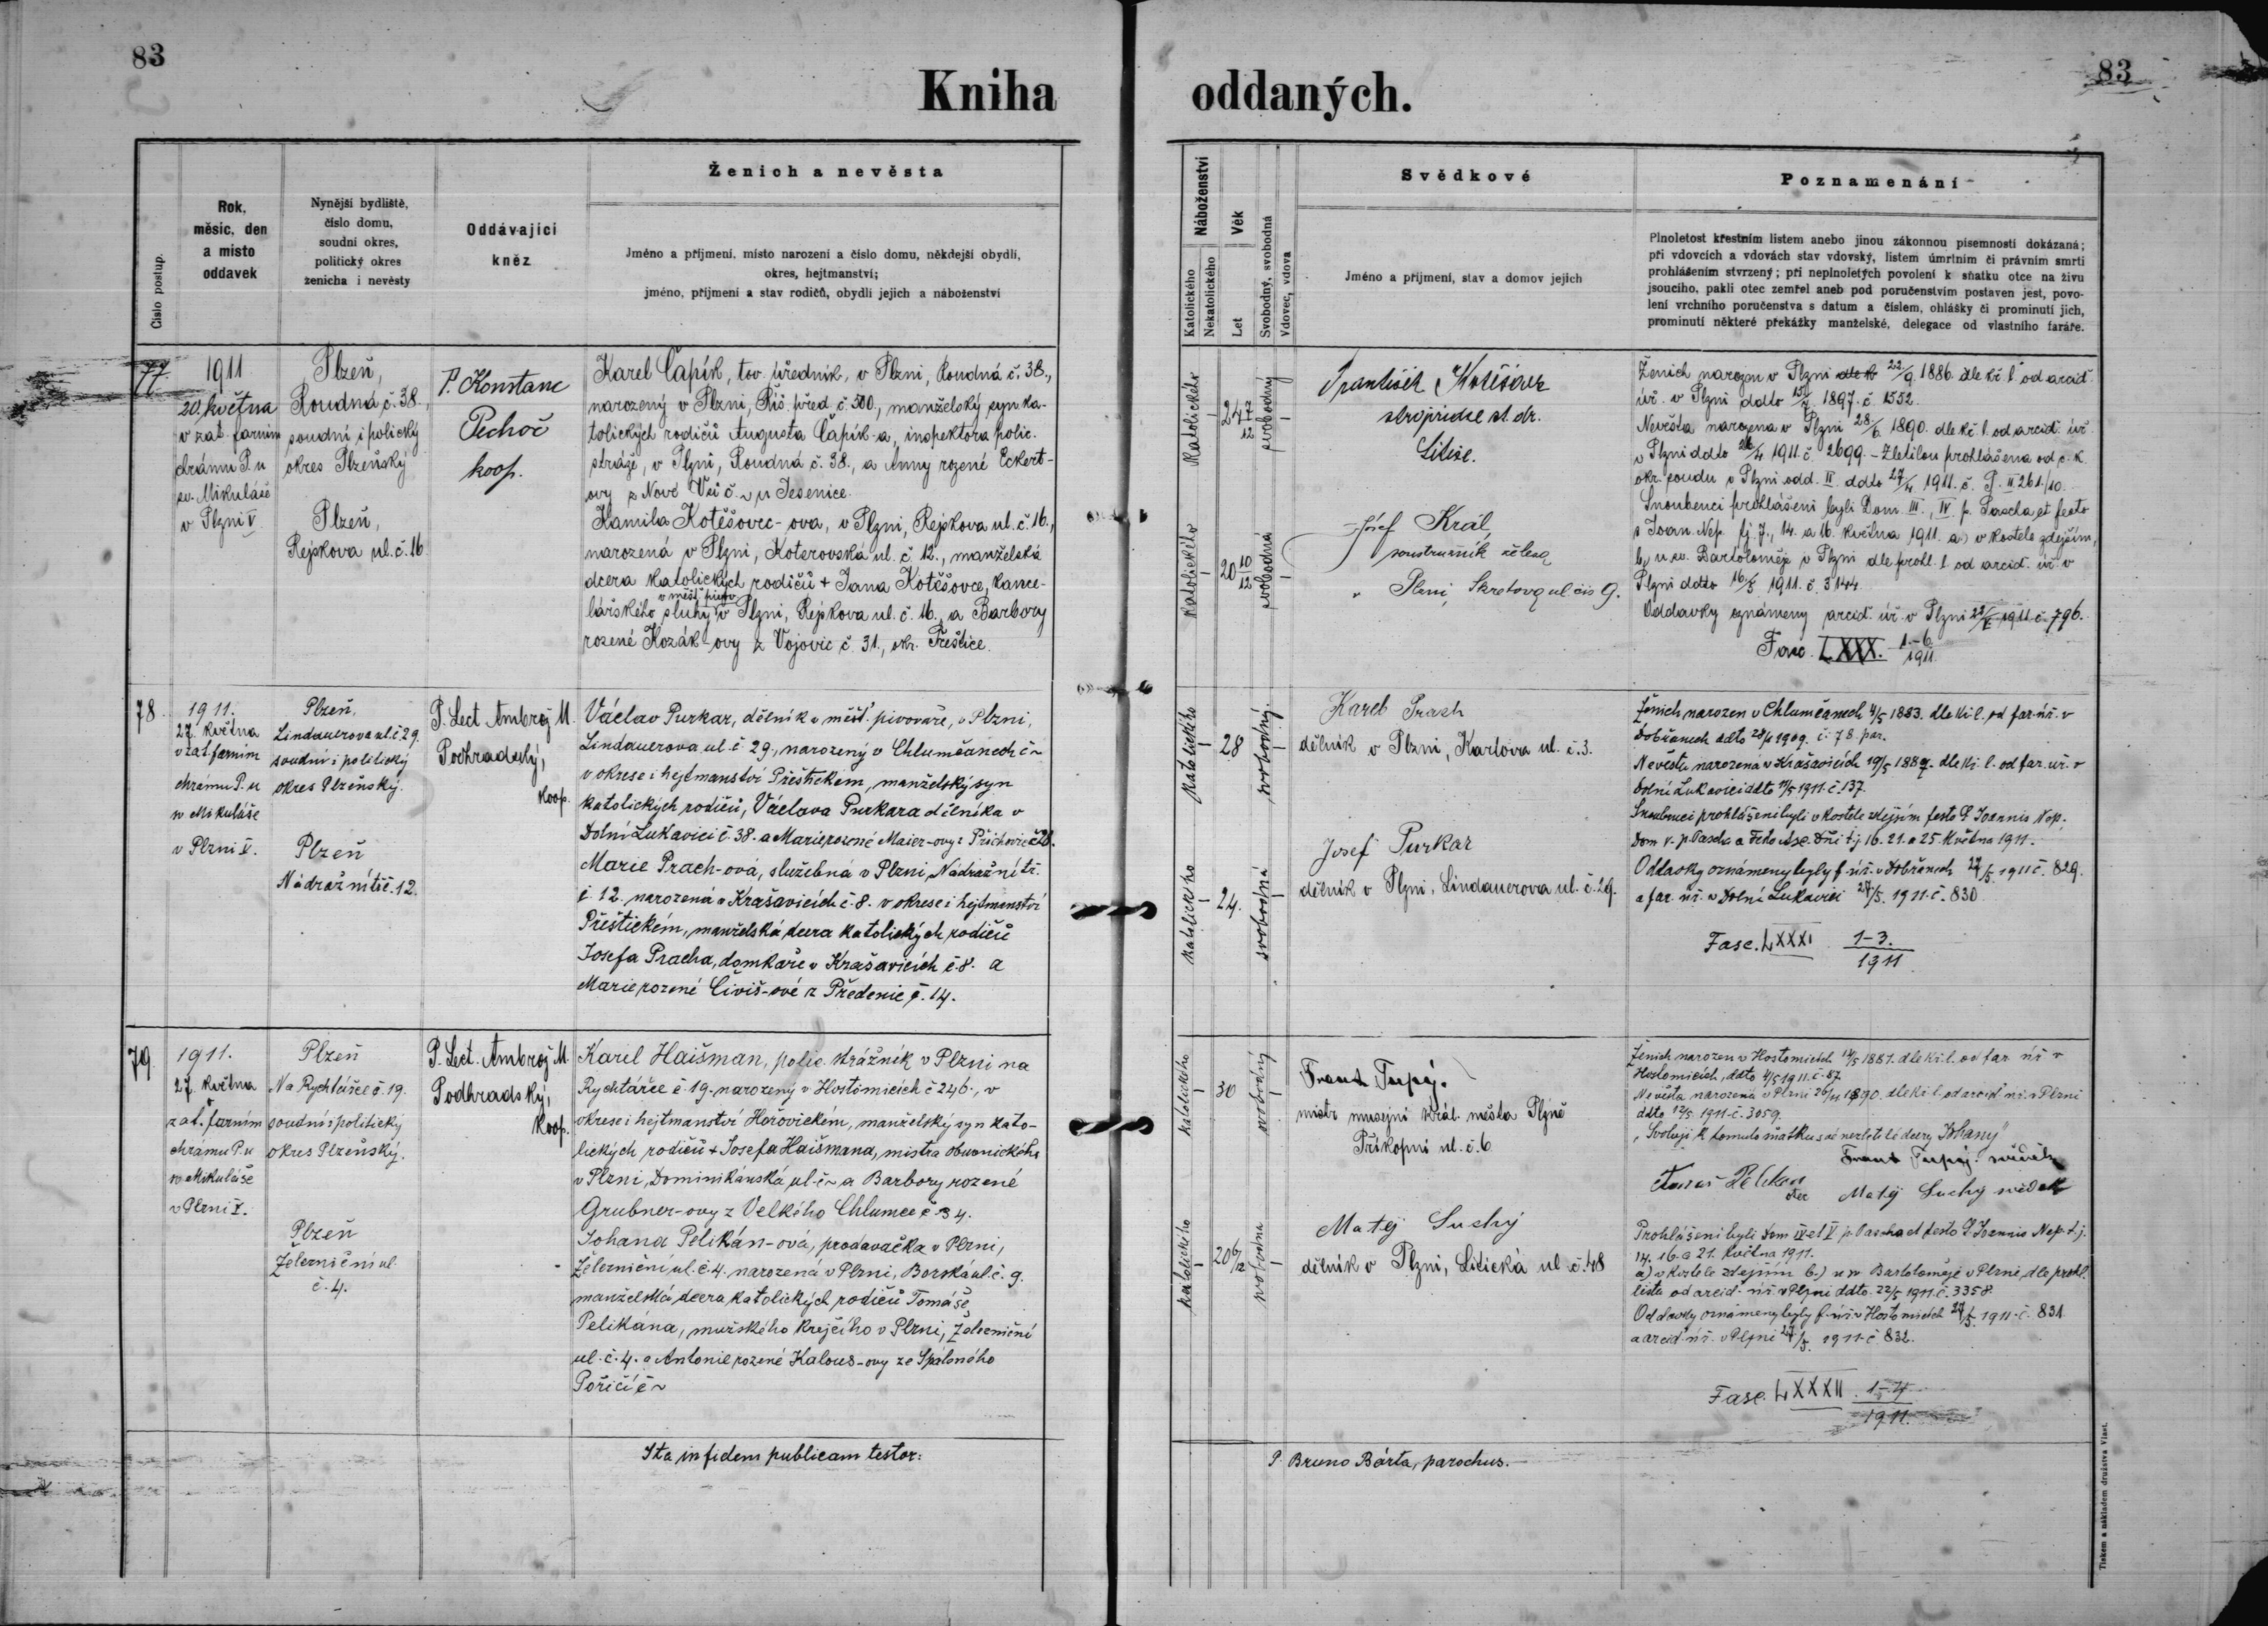 83
83
Kniha oddaných.
Číslo postup.
Rok,
měsíc, den
a místo
oddavek
Nynější bydliště,
číslo domu,
soudní okres,
politický okres
ženicha i nevěsty
Oddávající
kněz
Ženich a nevěsta
Jméno a příjmení, místo narození a číslo domu, někdejší obydlí,
okres, hejtmanství;
jméno, příjmení a stav rodičů, obydlí jejich a náboženství
Náboženství
Katolického
Nekatolického
Věk
Let
Svobodný, svobodná
Vdovec, vdova
Svědkové
Jméno a příjmení, stav a domov jejich
Poznamenání
Plnoletost křestním listem anebo jinou zákonnou písemností dokázaná;
při vdovcích a vdovách stav vdovský, listem úmrtním či právním smrti
prohlášením stvrzený; při neplnoletých povolení k sňatku otce na živu
jsoucího, pakli otec zemřel aneb pod poručenstvím postaven jest, povo-
lení vrchního poručenstva s datum a číslem, ohlášky či prominutí jich,
prominutí některé překážky manželské, delegace od vlastního faráře.
77
1911
20. května
v zat. farním
chrámu P. u
sv. Mikuláše
v Plzni V.
Plzeň,
Roudná č. 38.,
soudní i polický
okres Plzeňský
Plzeň,
Rejskova ul. č. 16
P. Konstanc
Pechoč
koop.
Karel Čapík, tov. úředník, v Plzni, Roudná č. 38.,
narozený v Plzni, Říš. před. č. 500., manželský syn ka-
tolických rodičů Augusta Čapík-a, inspektora polic.
stráže, v Plzni, Roudná č. 38., a Anny rozené Eckert-
ovy z Nové Vsi č. ~ u Jesenice.
Kamila Kotěšovec-ova, v Plzni, Rejskova ul. č. 16.,
narozená v Plzni, Koterovská ul. č. 12., manželská
dcera katolických rodičů + Jana Kotěšovce, kance-
v měšť. pivov.
lářského sluhy v Plzni, Rejskova ul. č. 16., a Barbory
rozené Kozák-ovy z Vojovic č. 31., okr. Přeštice.
katolického
24 7/12
svobodný
katolického
20 10/12
svobodná
František Kotěšovec
strojvůdce st. dr.
Litice.
Josef Král,
soustružník železa
v Plzni, Skretova ul čís 9.
Ženich narozen v Plzni 22/9 1886. dle kř. l. od arcid.
úř. v Plzni ddto 1897. č. 1552.
Nevěsta narozena v Plzni 28/6 1890. dle kř. l. od arcid. úř.
v Plzni ddto 26/4 1911. č. 2699. – Zletilou prohlášena od c. k.
okr. soudu v Plzni odd. II. ddto 27/4 1911. č. P. II 261/10.
Snoubenci prohlášeni byli Dom. III., IV. p. Pascha et festo
s Joan. Nep. tj. 7., 14. a 16. května 1911. a) v kostele zdejším,
b, u sv. Bartoloměje v Plzni dle prohl. l. od arcid. úř. v
Plzni ddto 16/5 1911. č. 3144.
Oddavky oznámeny arcid. úř. v Plzni 22/5 1911. č. 796.
Fasc. LXXX. 1.–6. 1911.
78
1911.
27. května
v zat. farním
chrámu P. u
sv Mikuláše
v Plzni V.
Plzeň,
Lindauerova ul. č 29.
soudní i politický
okres Plzeňský.
Plzeň
Nádražní tř. č. 12.
P. Lect. Ambrož M.
Podhradský,
koop.
Václav Purkar, dělník v měšť. pivováře, v Plzni,
Lindauerova ul. č 29., narozený v Chlumčanech č ~
v okrese i hejtmanství Přeštickém, manželský syn
katolických rodičů, Václava Purkara dělníka v
Dolní Lukavici č. 38. a Marie rozené Maier-ovy z Příchovic č.
Marie Prach-ová, služebná v Plzni, Nádražní tř.
č. 12. narozená v Krašovicích č. 8. v okrese i hejtmanství
Přeštickém, manželská dcera katolických rodičů
Josefa Pracha, domkáře v Krašovicích č. 8. a
Marie rozené Čiviš-ové z Předenic č. 14.
katolického
28
svobodný.
katolického
24.
svobodná
Karel Prach
dělník v Plzni, Karlova ul. č. 3.
Josef Purkar
dělník v Plzni, Lindauerova ul. č. 29.
Ženich narozen v Chlumčanech 4/5 1883. dle kř. l. od far. úř. v
Dobřanech ddto 1909. č. 78 par.
Nevěsta narozena v Krašovicích 19/5 1887. dle kř. l. od far. úř. v
Dolní Lukavici ddto 1911. č. 137.
Snoubenci prohlášeni byli v kostele zdejším festo S. Joannis Nep.
Dom V. p. Pascha a Festo Asc. Dñi t.j. 16. 21. a 25. Května 1911.
Oddavky oznámeny byly f. úř. v Dobřanech 27/5. 1911 č. 829.
a far. úř. v Dolní Lukavici 27/5. 1911. č. 830
Fasc. LXXXI 1–3. 1911
79.
1911.
27. května
v
zať. farním
chrámu P. u
sv. Mikuláše
v Plzni V.
Plzeň
Na Rychtářce č. 19.
soudní i politický
okres Plzeňský.
Plzeň
Železniční ul.
č. 4.
P. Lect. Ambrož M.
Podhradský,
koop.
Karel Haišman, polic. strážník v Plzni na
Rychtářce č 19. narozený v Hostomicích č 246., v
okrese i hejtmanství Hořovickém, manželský syn kato-
lických rodičů + Josefa Haišmana, mistra obuvnického
v Plzni, Dominikánská ul. č ~ a Barbory rozené
Grubner-ovy z Velkého Chlumce č. 34.
Johana Pelikán-ová, prodavačka v Plzni,
Železniční ul. č. 4. narozená v Plzni, Borská ul. č. 9.
manželská dcera katolických rodičů Tomáše
Pelikána, mužského krejčího v Plzni, Železniční
ul. č. 4. a Antonie rozené Kalous-ovy ze Spáleného
Poříčí č ~
katolického
30
svobodný
katolického
20 6/12
svobodna
Frant Tupý.
mistr musejní král. města Plzně
Příkopní ul. č. 6
Matěj Suchý
dělník v Plzni, Litická ul č. 48
Ženich narozen v Hostomicích 14/5 1881. dle kř. l. od far. úř. v
Hostomicích, ddto 4/5 1911. č. 87
Nevěsta narozena v Plzni 26/11 1890. dle kř. l. od arcid. úř. v Plzni
ddto 12/5. 1911. č. 3059.
„Svoluji k tomuto sňatku své nezletilé dcery Johany“
Frant Tupý. svědek
Tomáš Pelikan
otec Matěj Suchý svědek
Prohlášeni byli Dom IV et V p. Pascha et festo S. Joannis Nep. t.j.
14. 16. a 21. května 1911.
a) v kostele zdejším b.) u sv Bartoloměje v Plzni, dle prohl.
listu od arcid. úř. v Plzni ddto. 22/5 1911. č. 3358.
Oddavky oznámeny byly f. úř. v Hostomicích 27/5. 1911. č. 831.
a arcid. úř. v Plzni 27/5. 1911. č 832.
Fasc. LXXXII 1–4 1911.
Ita in fidem publicam testor: P. Bruno Bárta, parochus.
Tiskem a nákladem družstva Vlast.